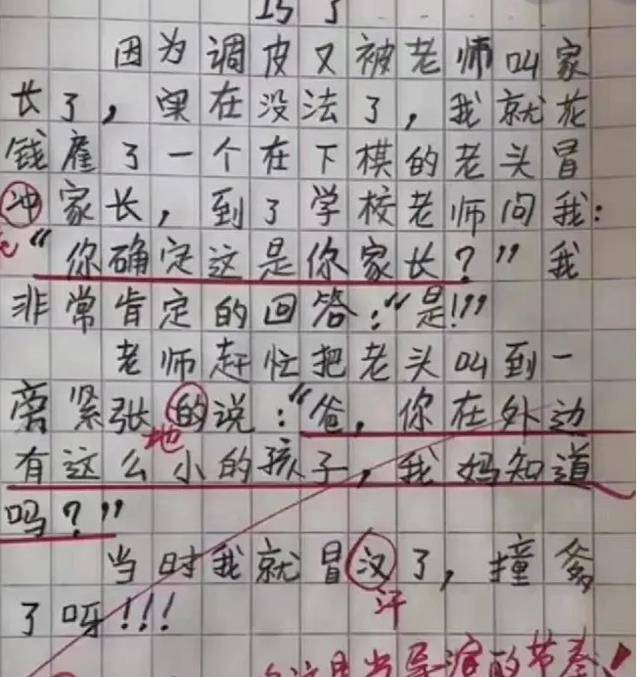 因为调皮又被老师叫家
长了，实在没法了，我就花
钱雇了一个在下棋的老头冒
冲家长，到了学校老师问我：
“你确定这是你家长？”我
非常肯定的回答：“是!”
老师赶忙把老头叫到一
旁紧张的说：“爸，你在外边
地
有这么小的孩子，我妈知道
吗？”
当时我就冒汉了，撞爹
汗
了呀!!!
当导演的节奏!